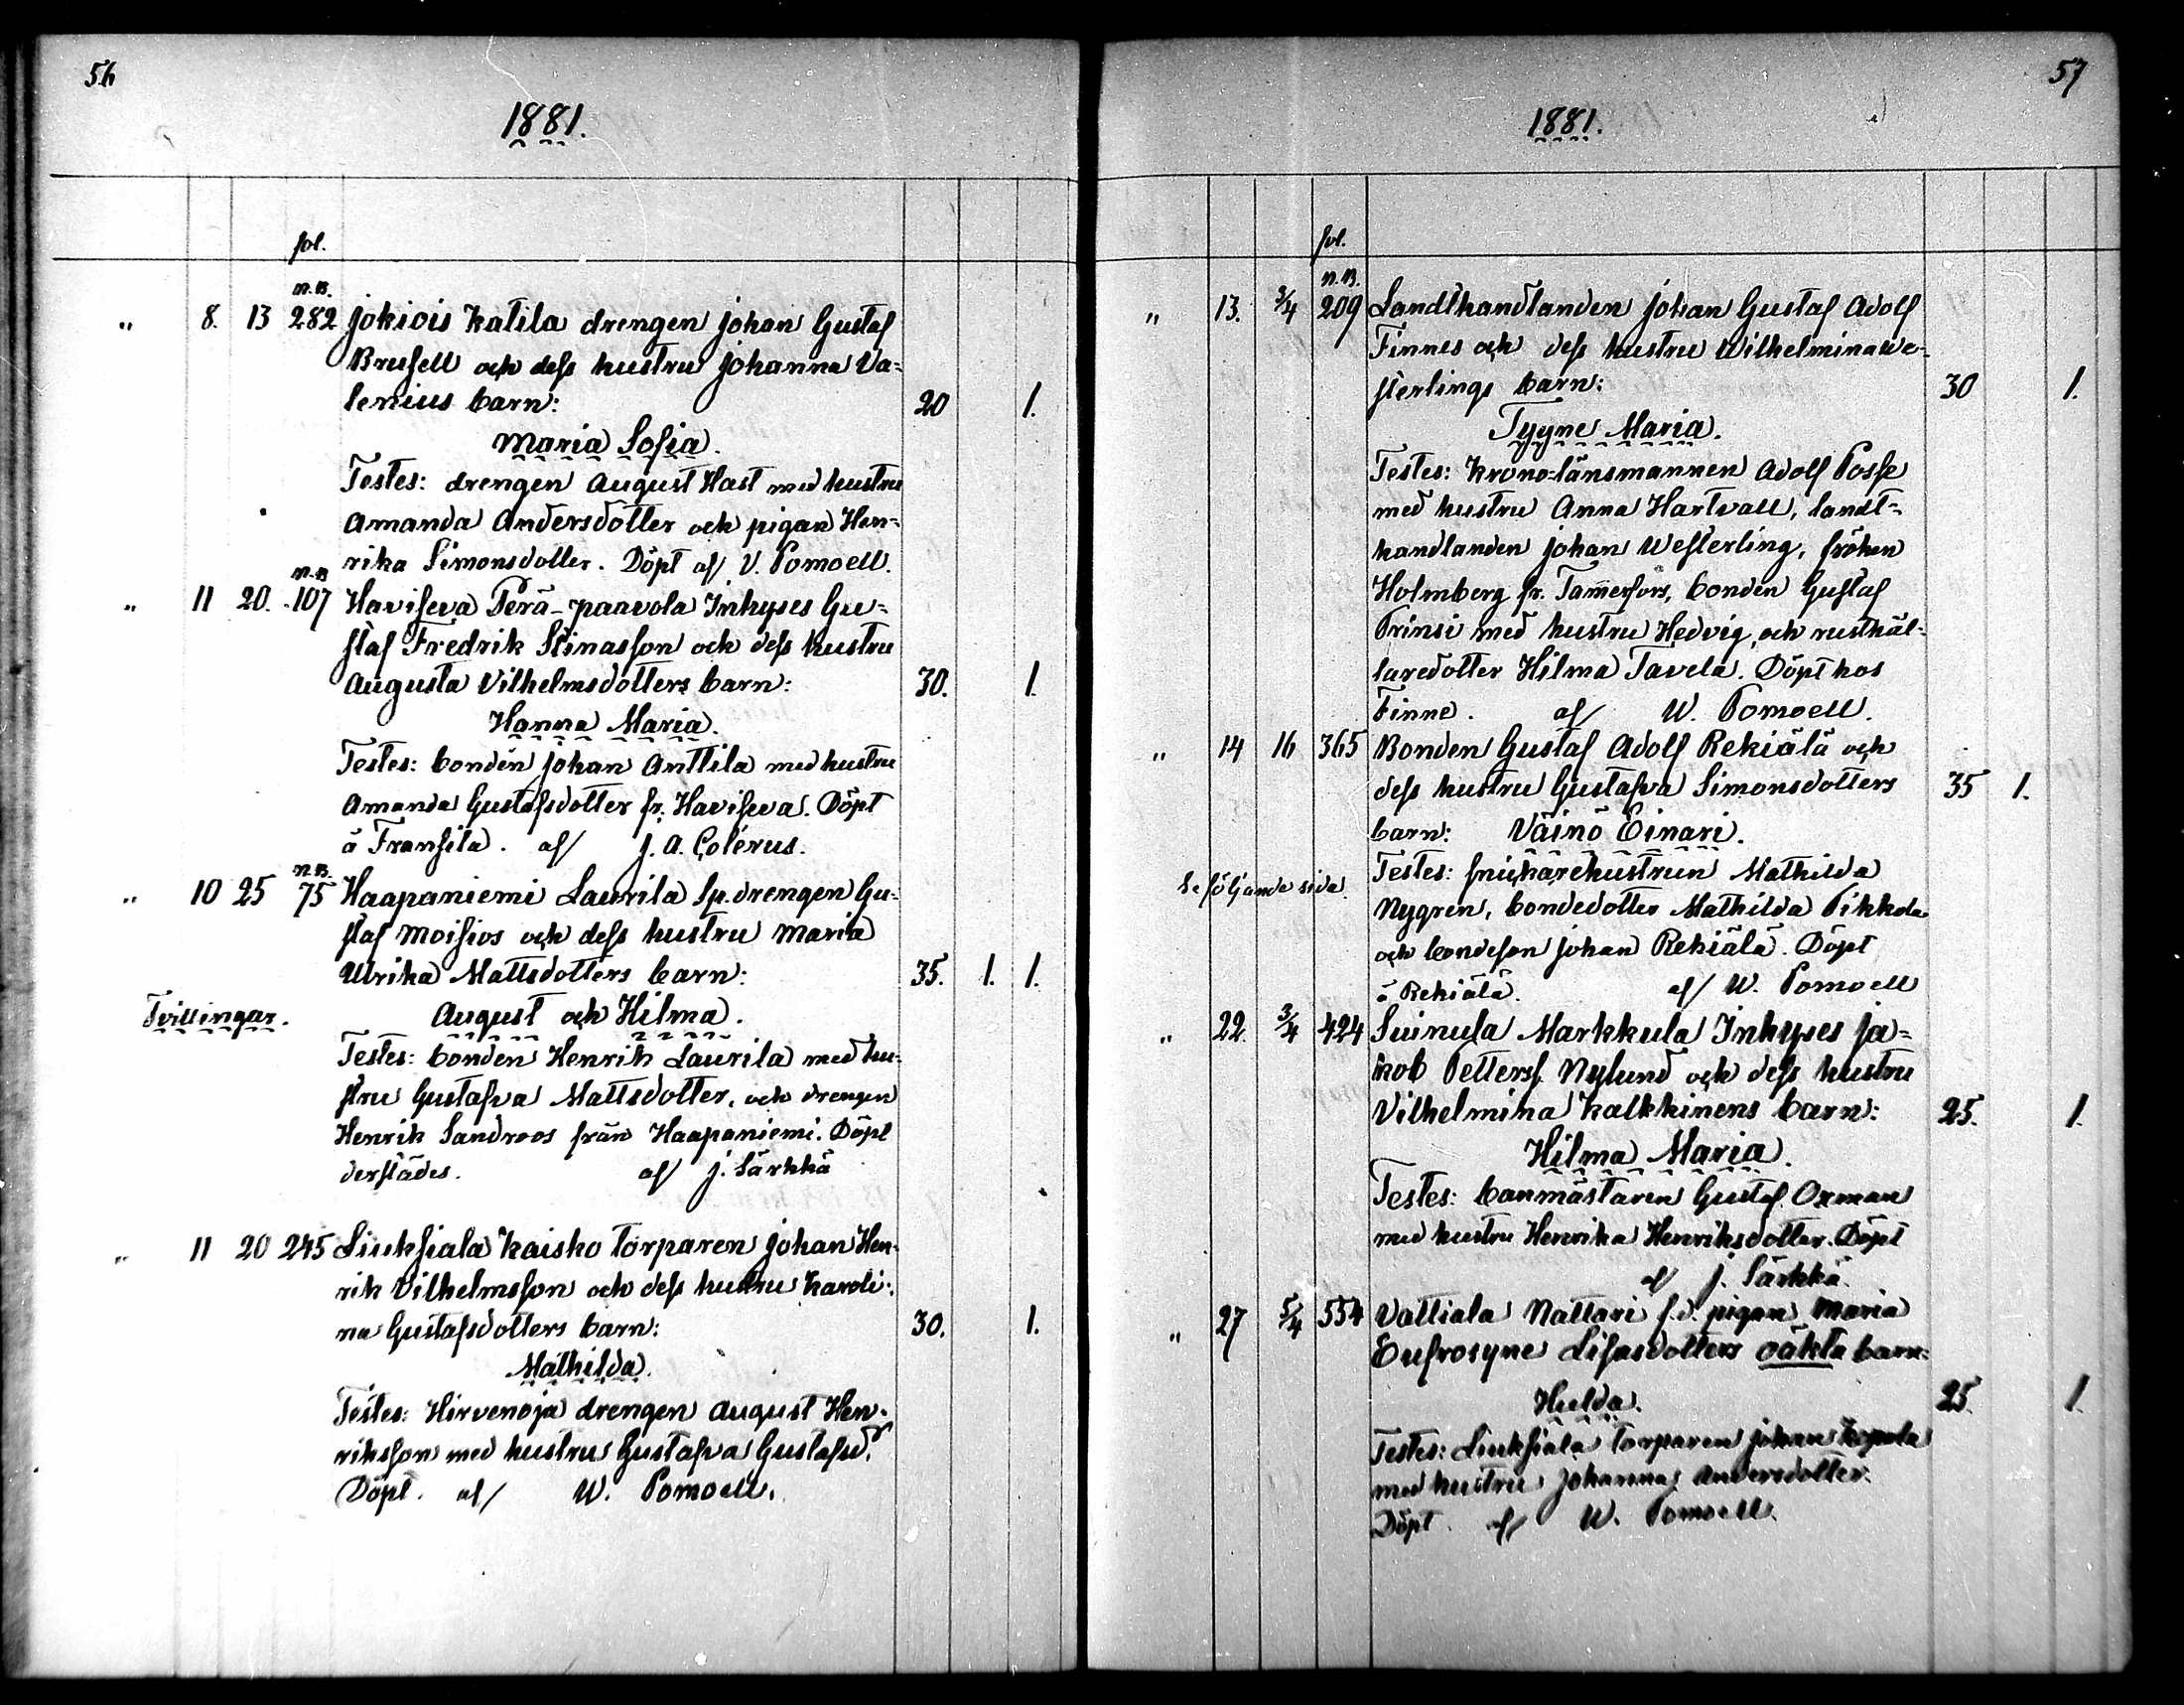 56
1881.
fol.
N.B.
" 8. 13 282 Jokiois Katila drengen Johan Gustaf
Brusell och dess hustru Johanna Va=
lenius barn: 20 1.
Maria Sofia.
Testes: drengen August Hast med hustru
Amanda Andersdotter och pigan Hen=
rika Simonsdotter. Döpt af V. Pomoell.
N.B.
" 11 20. 107 Havisева Perä-paavola Inhyses Gu=
staf Fredrik Stinasson och dess hustru
Augusta Vilhelmsdotters barn: 30. 1.
Hanna Maria.
Testes: bonden Johan Anttila med hustru
Amanda Gustafsdotter fr. Haviseva. Döpt
å Fransila. af J. A. Colérus.
N.B.
" 10 25 75 Haapaniemi Laurila sp. drengen Gu=
staf Moisios och dess hustru Maria
Ulrika Mattsdotters barn: 35. 1. 1.
Tvillingar. August och Hilma.
Testes: bonden Henrik Laurila med hu=
stru Gustafva Mattsdotter, och drengen
Henrik Sandroos från Haapaniemi. Döpt
derstädes. af J. Särkkä
" 11 20 245 Liuksiala Kaisko torparen Johan Hen=
rik Vilhelmsson och dess hustru Karoli=
na Gustafsdotters barn: 30. 1.
Mathilda.
Testes: Hirvenoja drengen August Hen=
riksson med hustru Gustafva Gustafsdr.
Döpt. af W. Pomoell.
57
1881.
fol.
N.B.
" 13. 3/4 209 Landthandlanden Johan Gustaf Adolf
Finnes och dess hustru Wilhelmina We=
sterlings barn: 30 1.
Tyyne Maria.
Testes: Krono-länsmannen Adolf Posse
med hustru Anna Hartvall, landt=
handlanden Johan Westerling, fröken
Holmberg fr. Tammerfors, bonden Gustaf
Prinsi med hustru Hedvig, och rusthål=
laredotter Hilma Tavela. Döpt hos
Finne. af W. Pomoell.
" 14 16 365 Bonden Gustaf Adolf Rekiälä och
dess hustru Gustafva Simonsdotters 35 1.
barn: Väinö Einari.
Testes: snickarehustrun Mathilda
Se följande sida.
Nygren, bondedotter Mathilda
och bondeson Johan Rekiälä. Döpt
å Rekiälä. af W. Pomoell
" 22. 3/4 424 Suinula Markkula Inhyses Ja=
kob Petterss. Nylund och dess hustru
Vilhelmina Kalkkinens barn: 25. 1.
Hilma Maria.
Testes: banmästaren Gustaf Oxman
med hustru Henrika Henriksdotter. Döpt
af J. Särkkä.
" 27 5/4 554 Vattiala Nattari f.d. pigan Maria
Eufrosyne Lisasdotters oäkta barn:
Hulda. 25. 1.
Testes: Liuksiala torparen Johan
med hustru Johanna Andersdotter.
Döpt. af W. Pomoell.